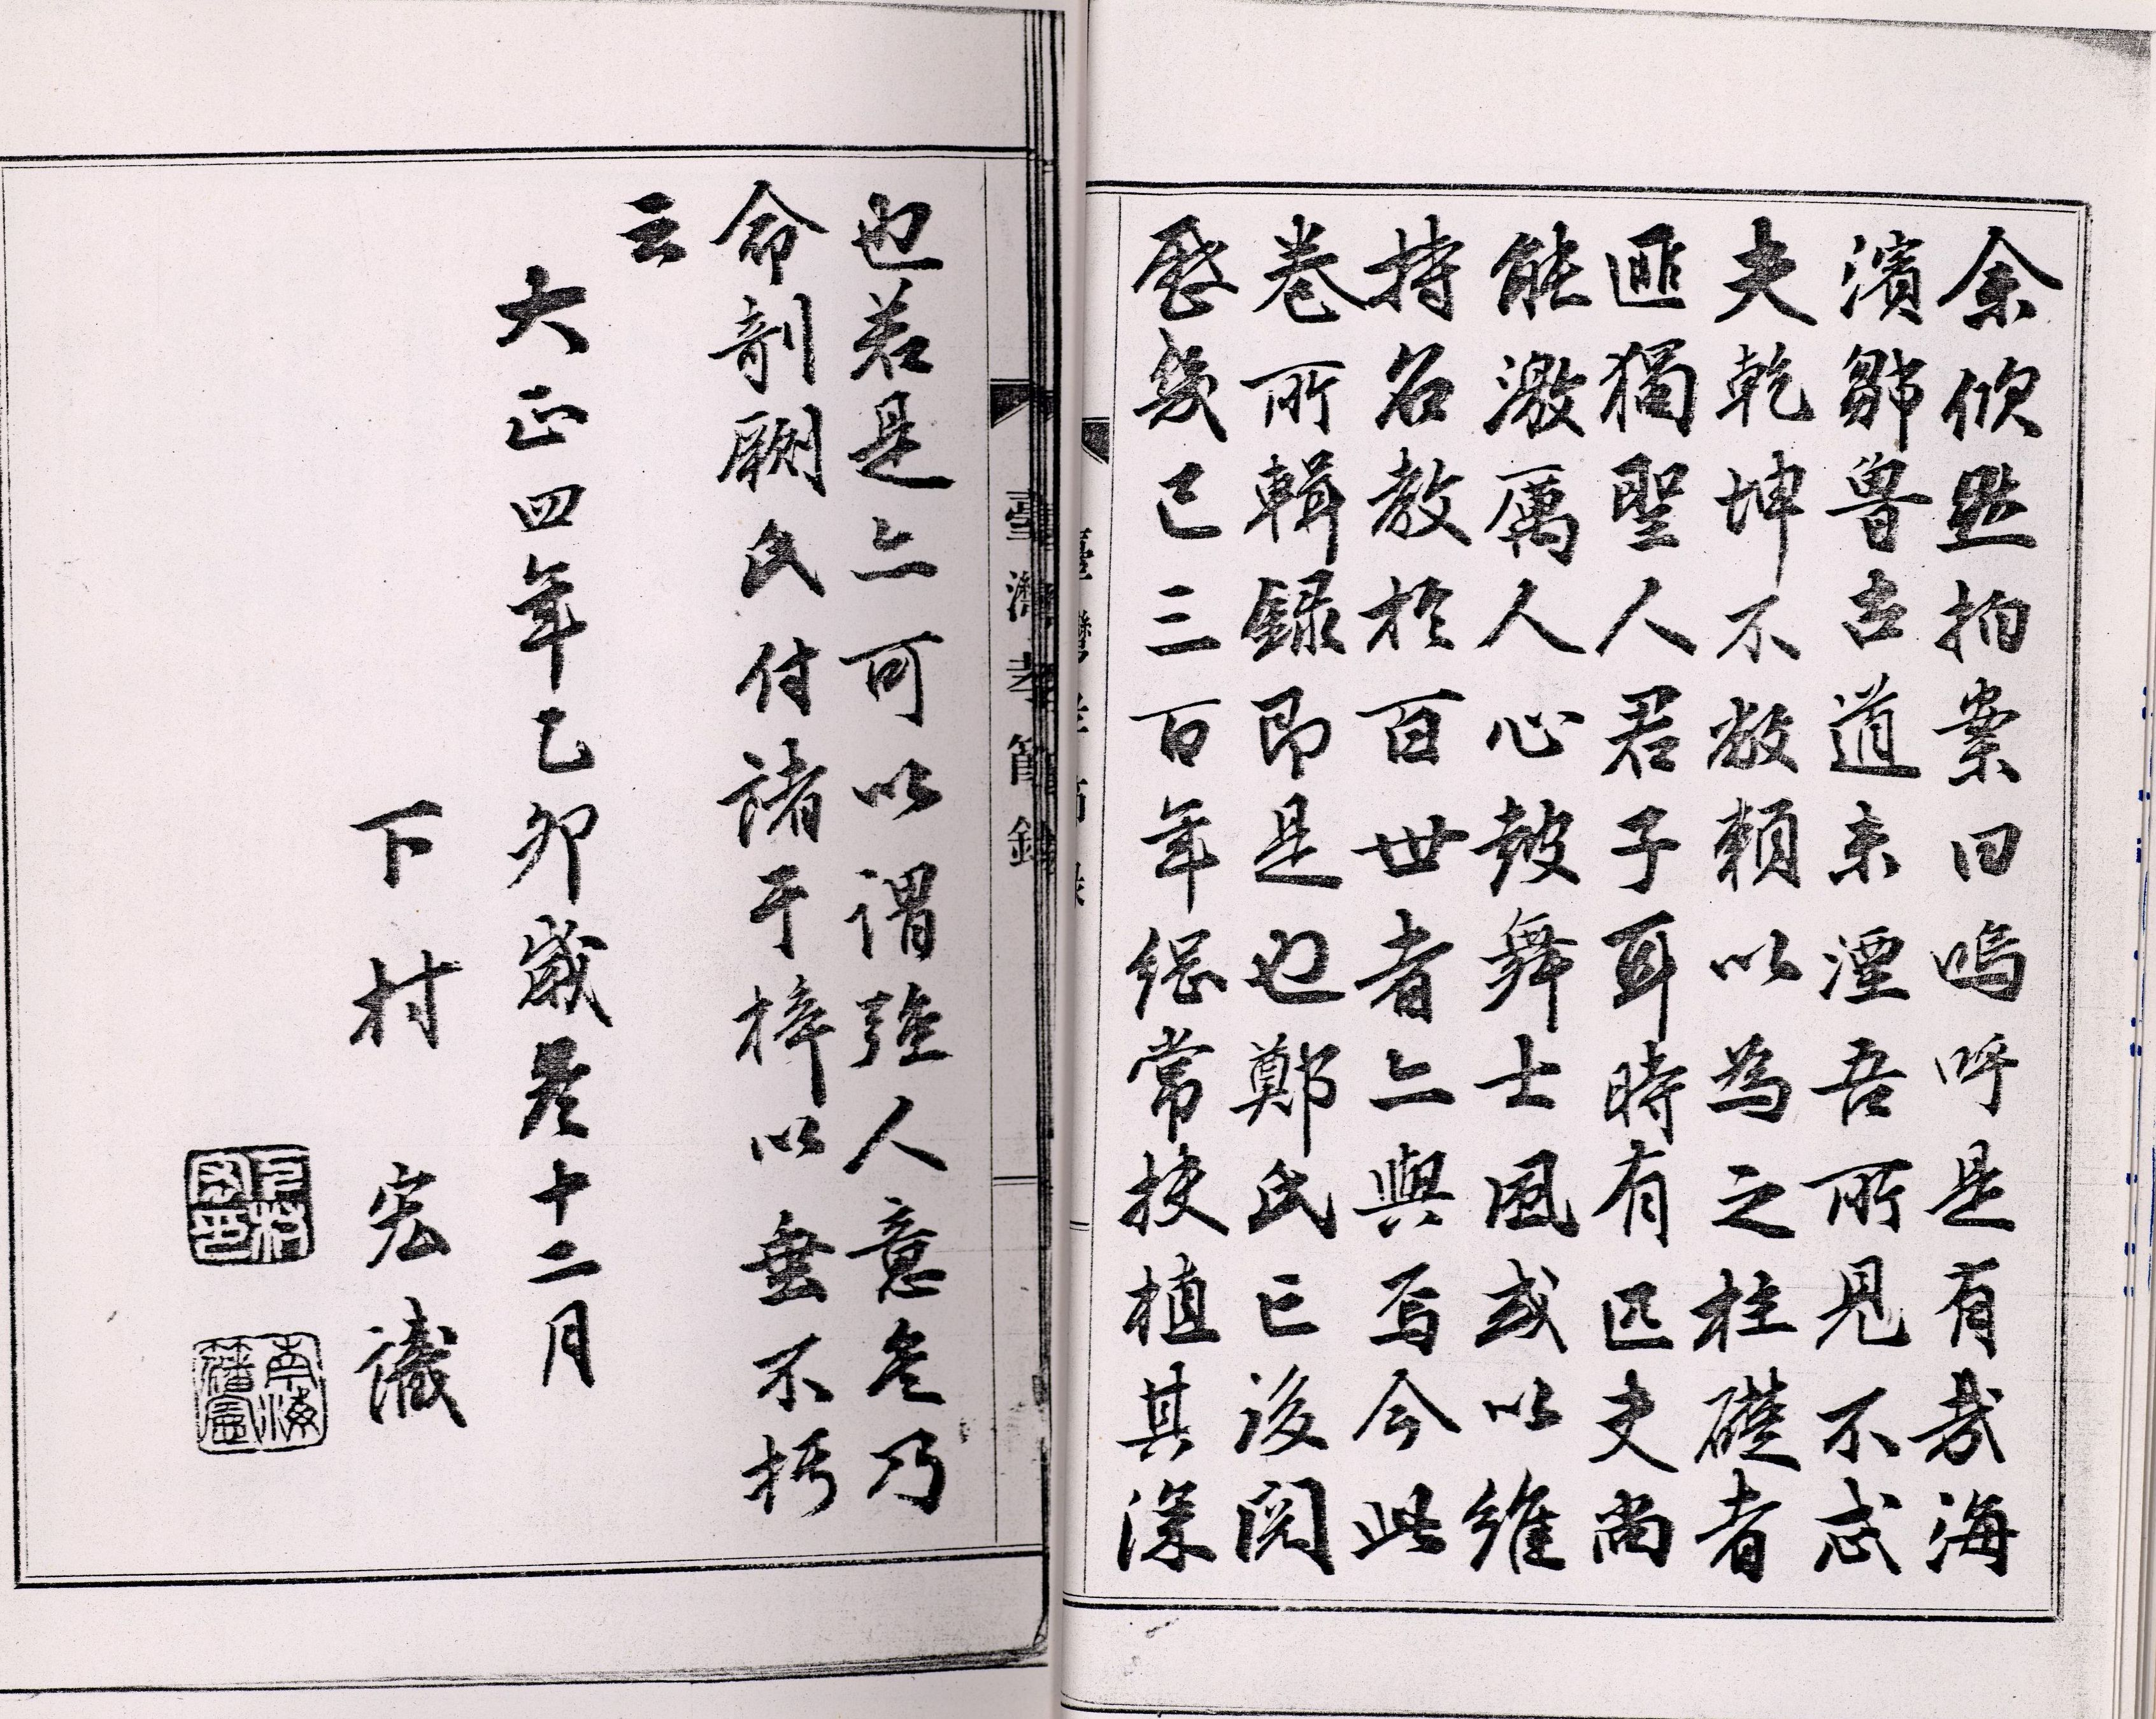 余然拍案曰嗚呼是有哉海
濱鄒魯古道未湮吾所見不忒
夫乾坤不敝賴以為之柱礎者
匪獨聖人君子耳時有匹夫尚
能激厲人心鼓舞士風或以維
持名教於百世者亦與焉今此
卷所輯錄即是也鄭氏亡後閱
歷幾已三百年綱常扶植其深
臺灣孝節錄
也若是亦可以謂強人意矣乃
命剞劂氏付諸于梓以垂不朽
云
大正四年乙卯歲冬十二月
下村宏識
下村宏印